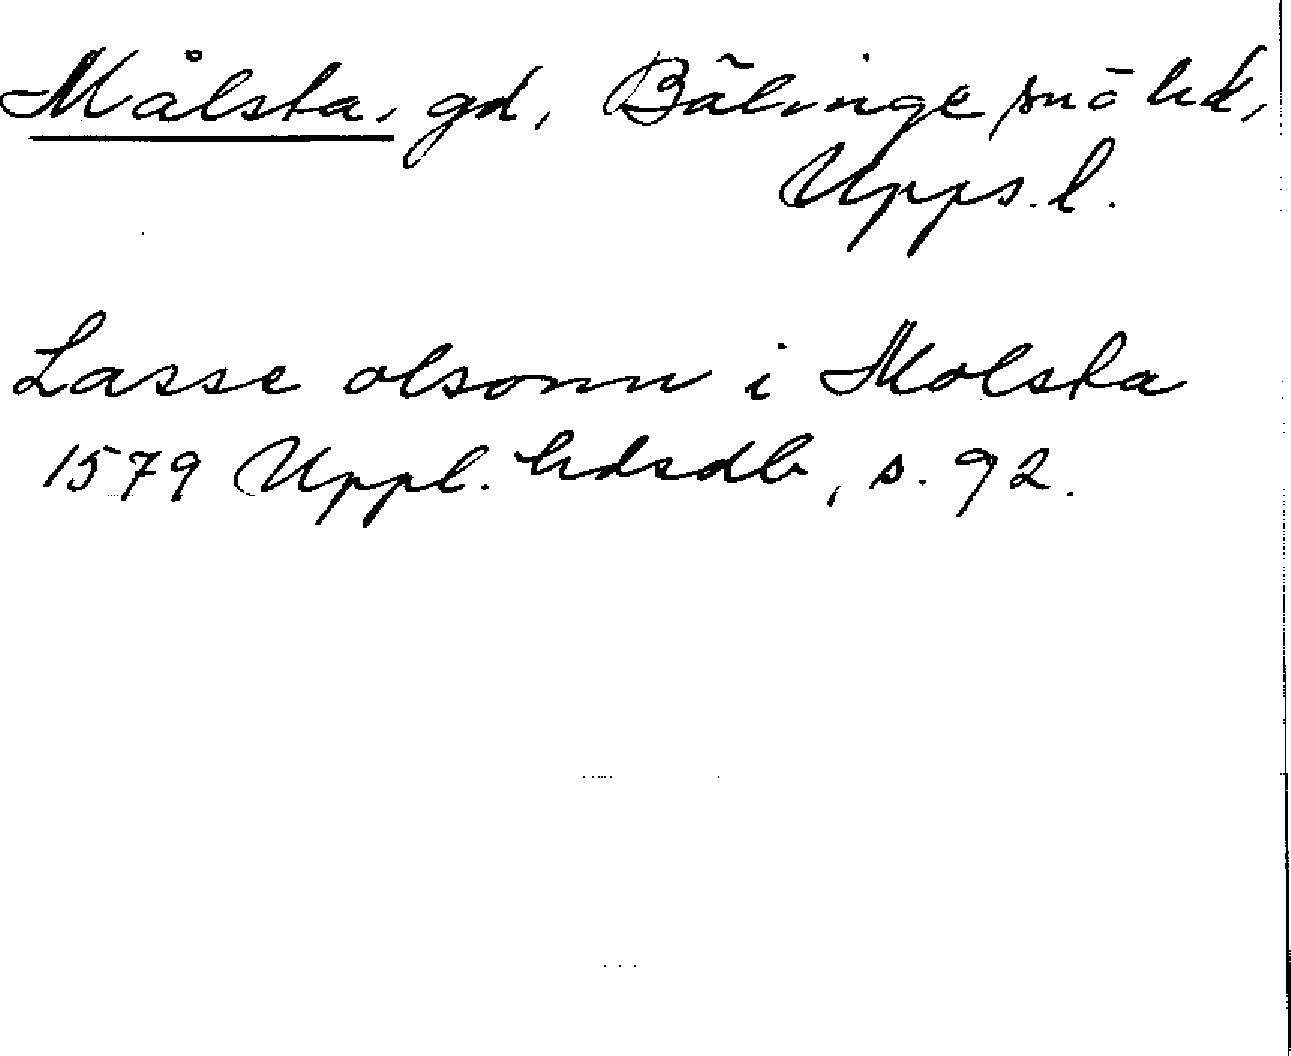 Målsta, gd, Bälinge sn o hd,
Upps. l.
Lasse olsonn i Molsta
1579 Uppl. hdsdb, s. 92.